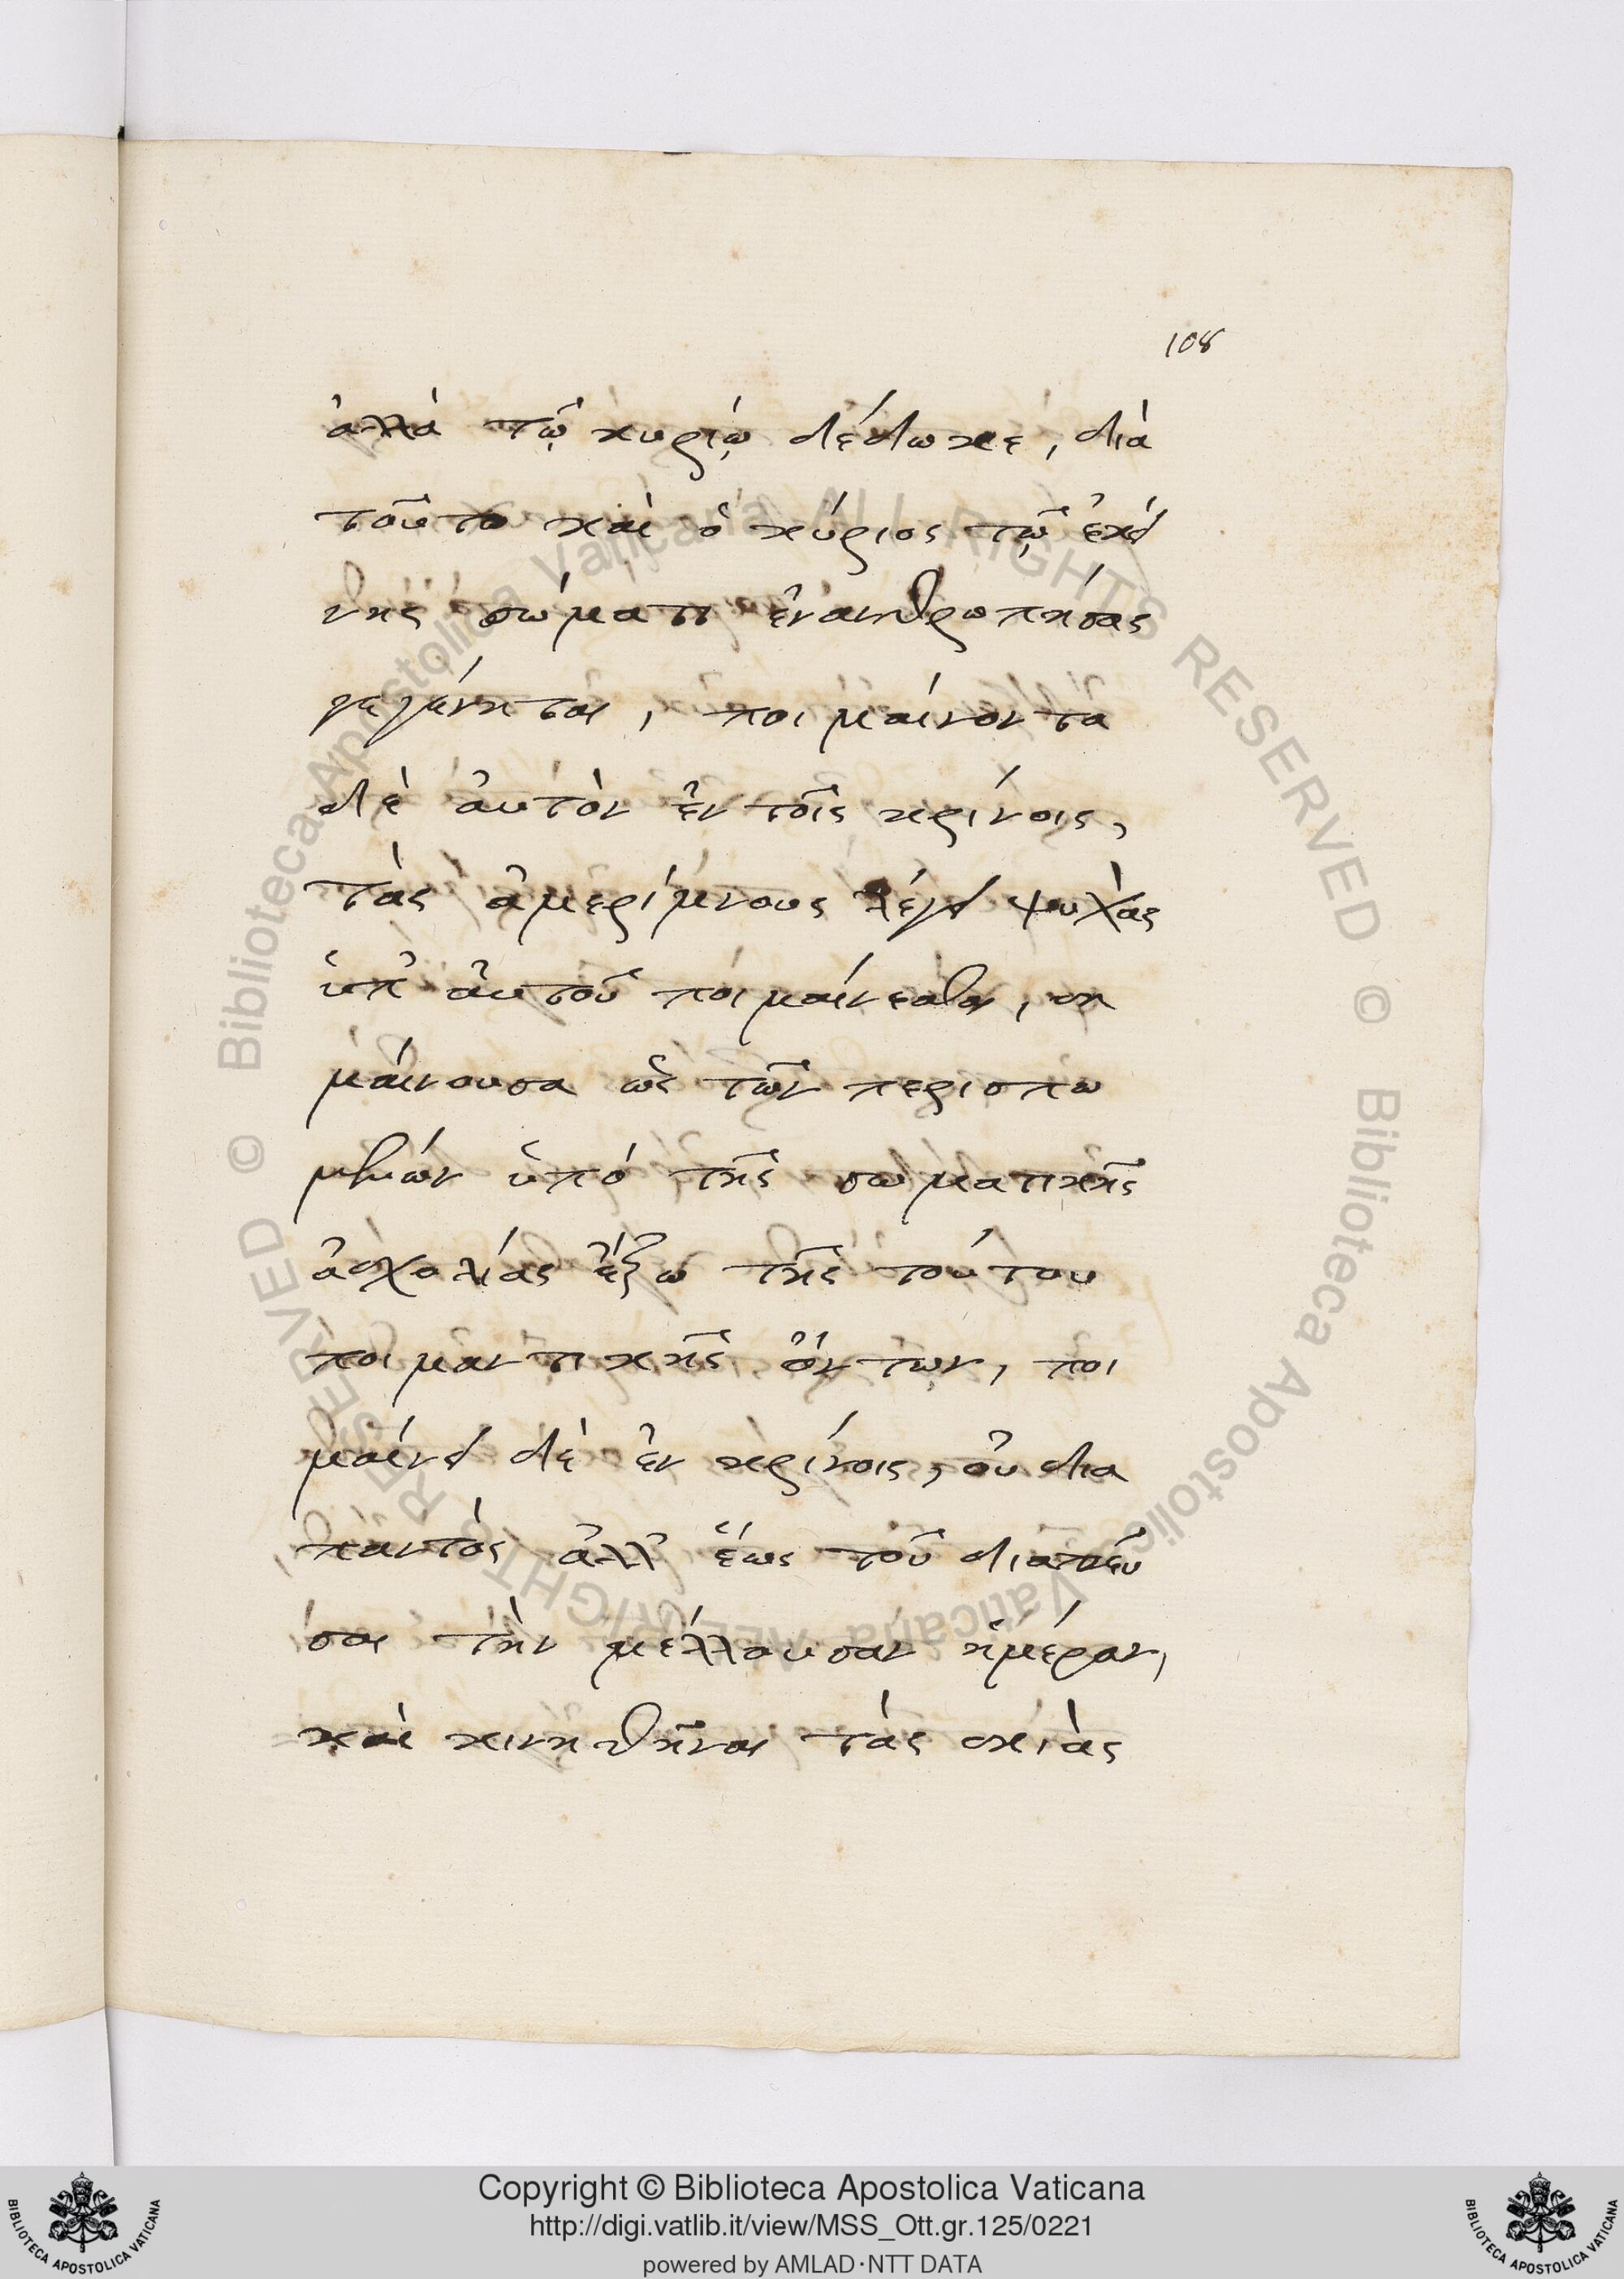 108
ἀλλὰ τῷ κυρίῳ δέδωκε, διὰ
τοῦτο καὶ ὁ κύριος τῷ ἐκεί
νης σώματι ἐνανθρωπήσας
γεγένηται, ποιμαίνοντα
δὲ αὐτὸν ἐν τοῖς κρίνοις,
τὰς ἀμερίμνους λέγει ψυχὰς
ὑπ' αὐτοῦ ποιμαίνεσθαι, ση
μαίνουσα ὡς τῶν περισπω
μένων ὑπὸ τῆς σωματικῆς
ἀσχολίας ἔξω τῆς τούτου
ποιμαντικῆς ὄντων, ποι
μαίνει δὲ ἐν κρίνοις, οὐ δια
παντὸς ἀλλ' ἕως τοῦ διαπνεῦ
σαι τὴν μέλλουσαν ἡμέραν,
καὶ κινηθῆναι τὰς σκιὰς
© Biblioteca Apostolica Vaticana ALL RIGHTS RESERVED © Biblioteca Apostolica Vaticana ALL RIGHTS RESERVED
Copyright © Biblioteca Apostolica Vaticana
http://digi.vatlib.it/view/MSS_Ott.gr.125/0221
powered by AMLAD·NTT DATA
BIBLIOTECA APOSTOLICA VATICANA
BIBLIOTECA APOSTOLICA VATICANA